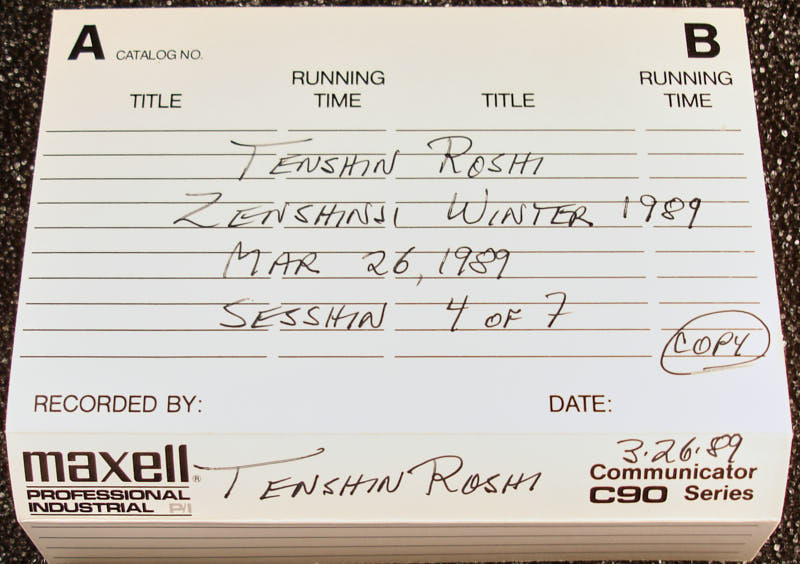 A CATALOG NO. B
TITLE RUNNING TIME TITLE RUNNING TIME
TENSHIN ROSHI
ZENSHINJI WINTER 1989
MAR 26, 1989
SESSHIN 4 OF 7
COPY
RECORDED BY: DATE:
maxell®
PROFESSIONAL
INDUSTRIAL P/I
TENSHIN ROSHI
3·26·89
Communicator
C90 Series